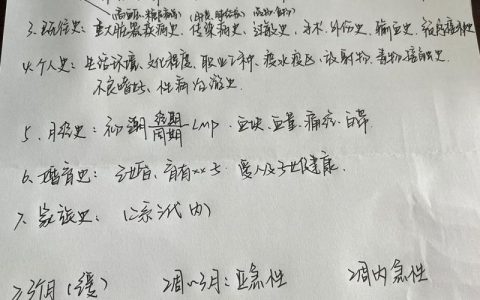 (高血压、糖尿病等) (肝炎、肺结核) (药物、食物)
3. 既往史：重大脏器疾病史、传染病史、过敏史、手术、外伤史、输血史、预防接种史
4. 个人史：生活环境、文化程度、职业工种、疫水疫区、放射物、毒物接触史
不良嗜好、性病冶游史.
5. 月经史：初潮 经期/周期 LMP、血块、血量、痛经、白带
6. 婚育史：结婚、育有xx子、爱人及子女健康.
7. 家族史：(三系三代内)
≥3个月(缓) 2周~3月：亚急性 2周内急性